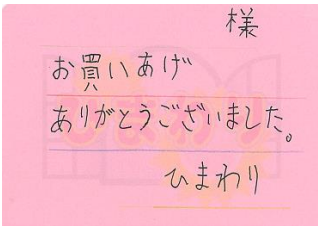 様
お買いあげ
ありがとうございました。
ひまわり
ひまわり